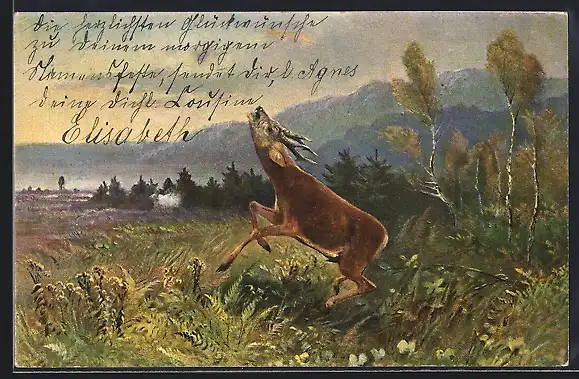 Die herzlichsten Glückwünsche
zu Deinem morgigem
Namensfeste, sendet Dir, l. Agnes
deine Dichl. Cousine
Elisabeth